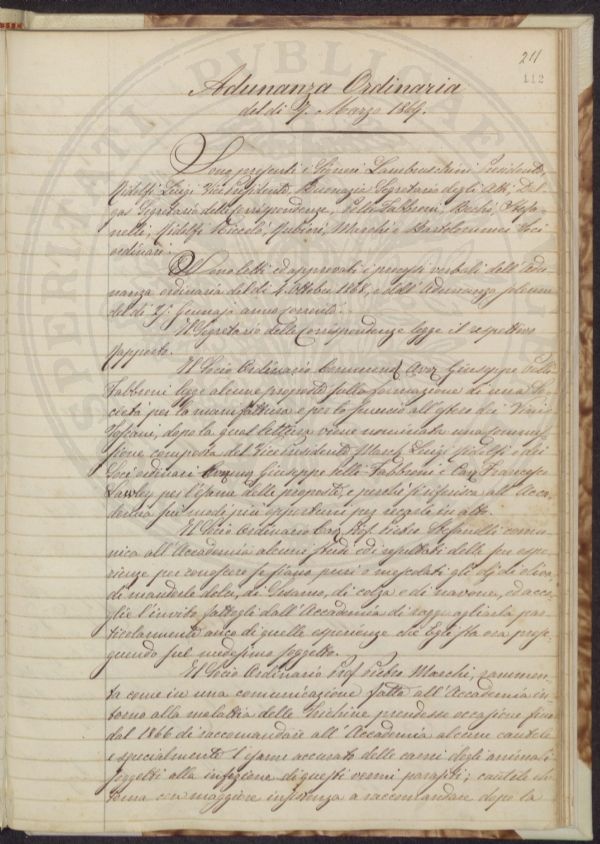 211
112
Adunanza Ordinaria
del dì 7. Marzo 1869.
Sono presenti i Signori Lambruschini Presidente,
Ridolfi Luigi Vice Presidente, Buonazia Segretario degli Atti, Del
gas Segretario delle Corrispondenze, Pelli Fabbroni, Bechi, Stefa-
nelli, Ridolfi Niccolò, Rubieri, Marchi e Bartolommei Soci
ordinari.
Sono letti ed approvati i processi verbali dell'Adu-
nanza ordinaria del dì 4 Ottobre 1868, e dell'Adunanza solenne
del dì Gennajo anno
Il Segretario delle Corrispondenze legge il respettivo
rapporto.
Il Socio Ordinario Commend. Avv. Giuseppe Pelli
Fabbroni legge alcune proposte sulla formazione di una So-
cietà per la manifattura e per lo smercio all'estero dei Vini
Toscani, dopo la qual lettura viene nominata una Commis-
sione composta del Vicepresidente March. Luigi Ridolfi e dei
Soci ordinari Giuseppe Pelli Fabbroni e Cav. Francesco
Lawley per l'esame delle proposte, e perchè si riferisca all'Acca-
demia sui modi più opportuni per recarle in atto.
Il Socio Ordinario Cav. Prof. Pietro Stefanelli comu-
nica all'Accademia alcuni studi ed i resultati delle sue espe-
rienze per conoscere se siano puri o mescolati gli olj di oliva,
di mandorle dolci, di Sesamo, di colza e di navone, ed acco-
glie l'invito fattogli dall'Accademia di ragguagliarla par-
ticolarmente anco di quelle esperienze che Egli sta ora prose-
guendo sul medesimo soggetto.
Il Socio Ordinario Prof. Pietro Marchi, rammen-
ta come in una comunicazione fatta all'Accademia in-
torno alla malattia delle Trichine prendesse occasione fino
dal 1866 di raccomandare all'Accademia alcune cautele
e specialmente l'esame accurato delle carni degli animali
soggetti alla infezione di questi vermi parassiti; cautele che
torna con maggiore insistenza a raccomandare dopo la